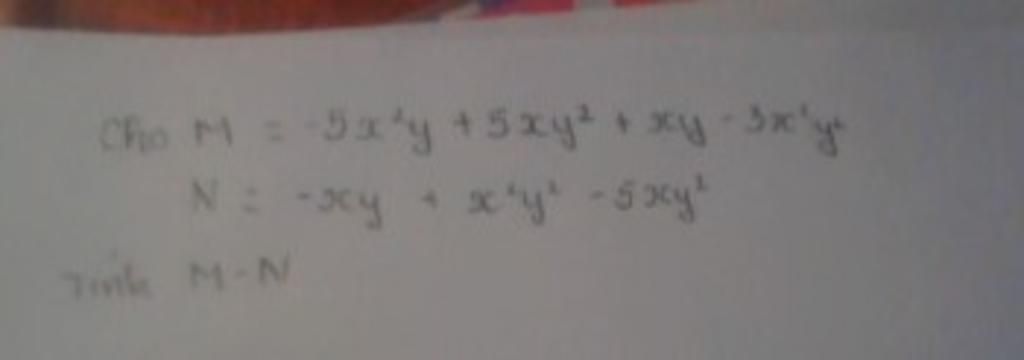 Cho M = -5x²y + 5xy² + xy - 3x²y²
N = -xy + x²y² - 5xy²
Tính M - N